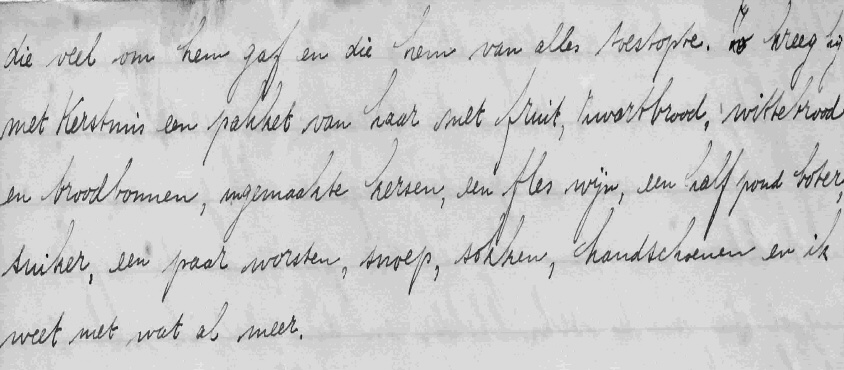 die veel om hem gaf en die hem van alles toestopte. Zo kreeg hij
met Kerstmis een pakket van haar met fruit, zwartbrood, wittebrood
en broodbonnen, ingemaakte kersen, een fles wijn, een half pond boter,
suiker, een paar worsten, snoep, sokken, handschoenen en ik
weet niet wat al meer.